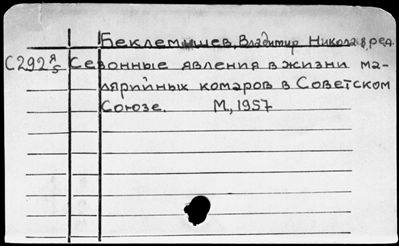 Беклемишев, Владимир Никола, ред.
С292 Я/5 Сезонные явления в жизни ма-
лярийных комаров в Советском
Союзе. М, 1957